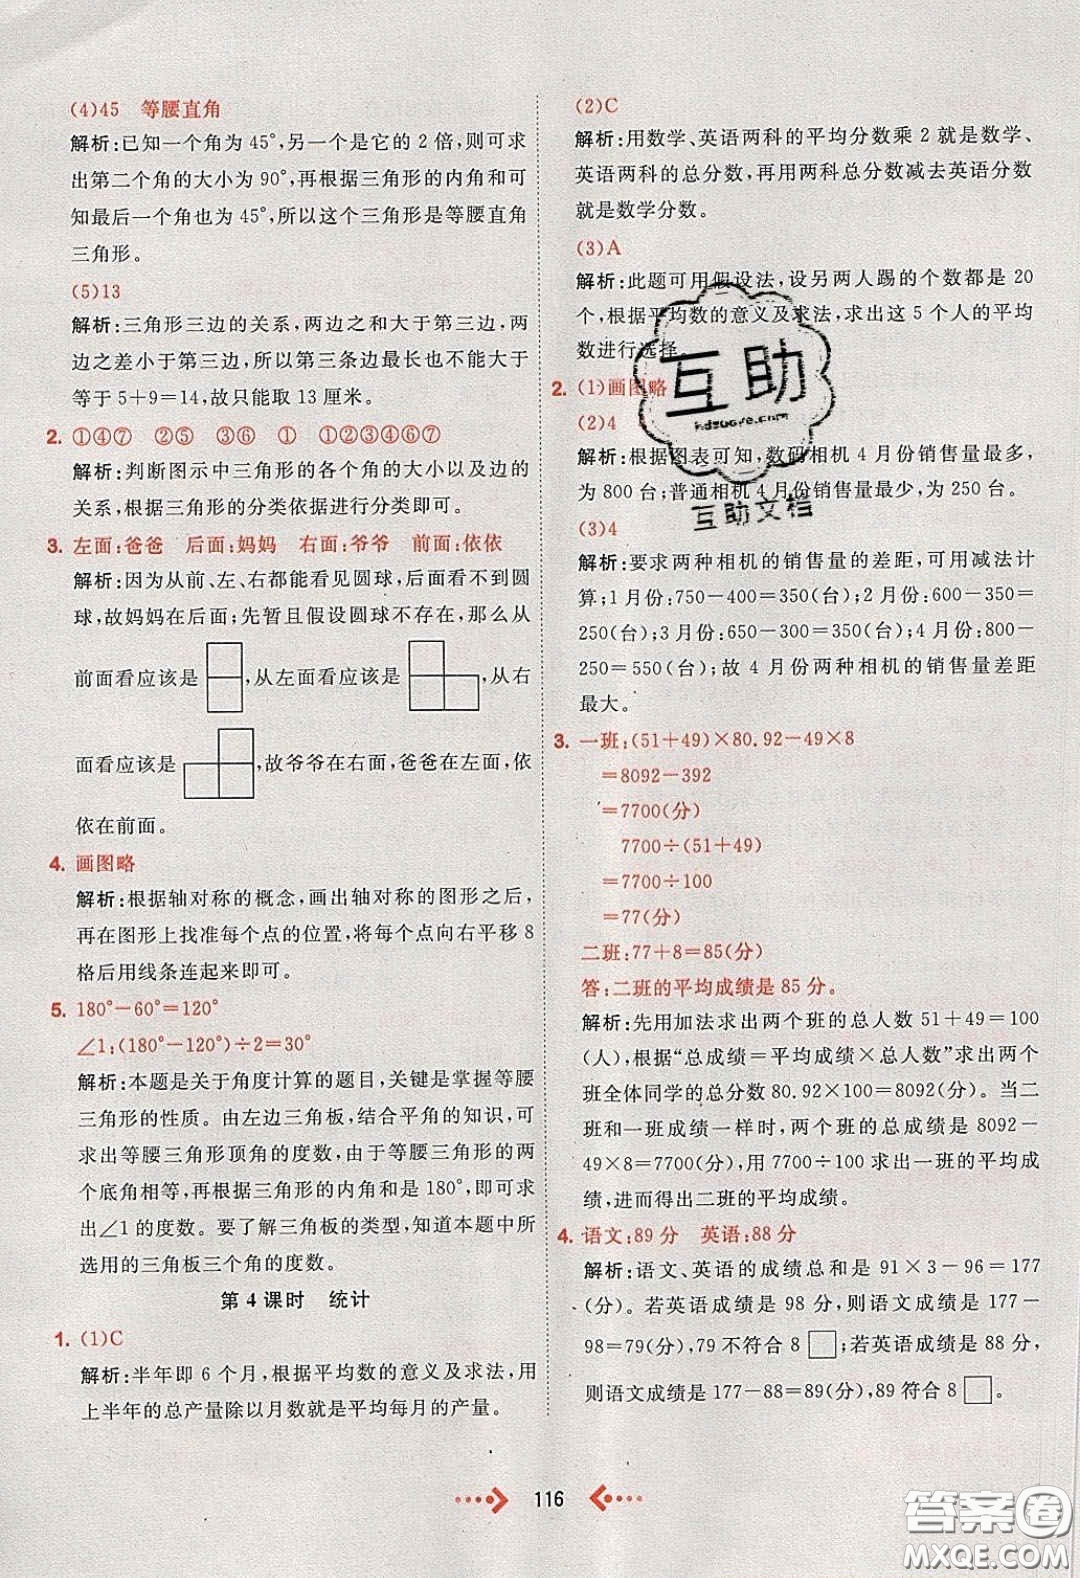 (4)45　等腰直角
解析:已知一个角为45°,另一个是它的2倍,则可求
出第二个角的大小为90°,再根据三角形的内角和可
知最后一个角也为45°,所以这个三角形是等腰直角
三角形。
(5)13
解析:三角形三边的关系,两边之和大于第三边,两
边之差小于第三边,所以第三条边最长也不能大于
等于5+9=14,故只能取13厘米。
2. ①④⑦　②⑤　③⑥　①　①②③④⑥⑦
解析:判断图示中三角形的各个角的大小以及边的
关系,根据三角形的分类依据进行分类即可。
3. 左面:爸爸　后面:妈妈　右面:爷爷　前面:依依
解析:因为从前、左、右都能看见圆球,后面看不到圆
球,故妈妈在后面;先暂且假设圆球不存在,那么从
前面看应该是 ,从左面看应该是 ,从右
面看应该是 ,故爷爷在右面,爸爸在左面,依
依在前面。
4. 画图略
解析:根据轴对称的概念,画出轴对称的图形之后,
再在图形上找准每个点的位置,将每个点向右平移8
格后用线条连起来即可。
5. 180°-60°=120°
∠1:(180°-120°)÷2=30°
解析:本题是关于角度计算的题目,关键是掌握等腰
三角形的性质。由左边三角板,结合平角的知识,可
求出等腰三角形顶角的度数;由等腰三角形的两个
底角相等,再根据三角形的内角和是180°,即可求
出∠1的度数。要了解三角板的类型,知道本题中所
选用的三角板三个角的度数。
第4课时　统计
1. (1)C
解析:半年即6个月,根据平均数的意义及求法,用
上半年的总产量除以月数就是平均每月的产量。
(2)C
解析:用数学、英语两科的平均分数乘2就是数学、
英语两科的总分数,再用两科总分数减去英语分数
就是数学分数。
(3)A
解析:此题可用假设法,设另两人踢的个数都是20
个,根据平均数的意义及求法,求出这5个人的平均
数进行选择。
2. (1)画图略
(2)4
解析:根据图表可知,数码相机4月份销售量最多,
为800台;普通相机4月份销售量最少,为250台。
(3)4
解析:要求两种相机的销售量的差距,可用减法计
算;1月份:750-400=350(台);2月份:600-350=
250(台);3月份:650-300=350(台);4月份:800-
250=550(台);故4月份两种相机的销售量差距
最大。
3. 一班:(51+49)×80.92-49×8
=8092-392
=7700(分)
7700÷(51+49)
=7700÷100
=77(分)
二班:77+8=85(分)
答:二班的平均成绩是85分。
解析:先用加法求出两个班的总人数51+49=100
(人),根据“总成绩=平均成绩×总人数”求出两个
班全体同学的总分数80.92×100=8092(分)。当二
班和一班成绩一样时,两个班的总成绩是8092-
49×8=7700(分),用7700÷100求出一班的平均成
绩,进而得出二班的平均成绩。
4. 语文:89分　英语:88分
解析:语文、英语的成绩总和是91×3-96=177
(分)。若英语成绩是98分,则语文成绩是177-
98=79(分),79不符合8□;若英语成绩是88分,
则语文成绩是177-88=89(分),89符合8□。
116
互助
hdzuoye.com
互助文档
答案圈
MXQE.COM